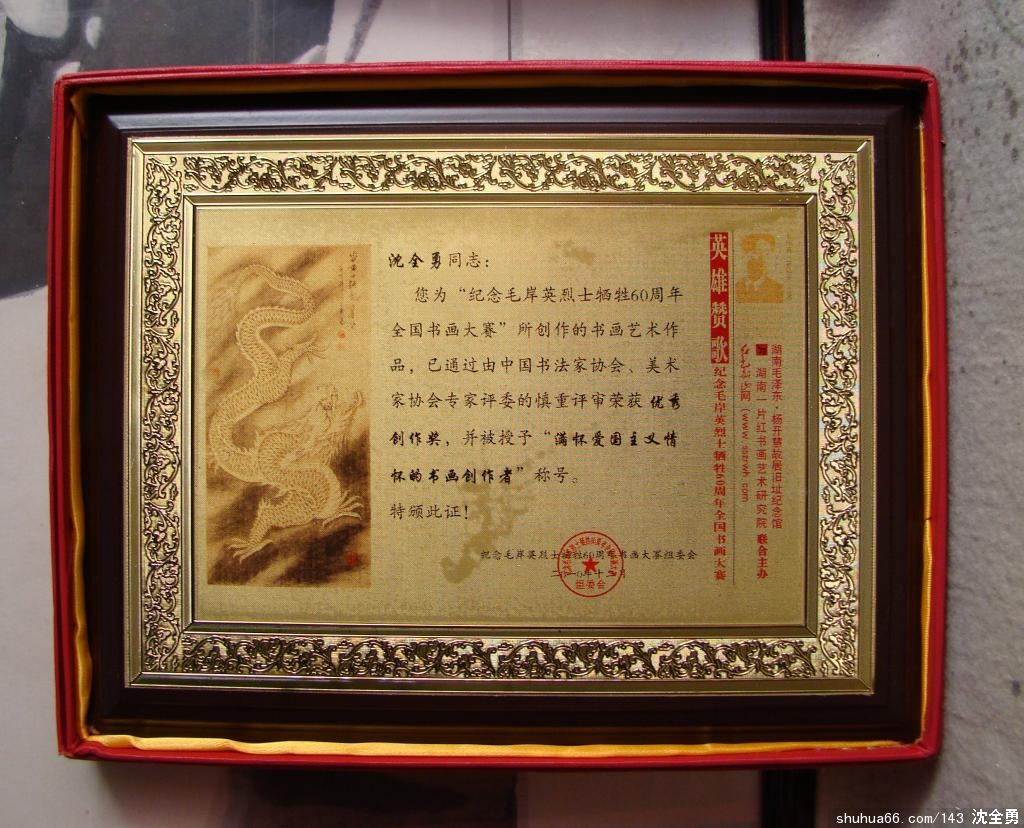 沈全勇同志：
您为“纪念毛岸英烈士牺牲60周年
全国书画大赛”所创作的书画艺术作
品，已通过由中国书法家协会、美术
家协会专家评委的慎重评审荣获优秀
创作奖，并被授予“满怀爱国主义情
怀的书画创作者”称号。
特颁此证！
纪念毛岸英烈士牺牲60周年书画大赛组委会
二〇一〇年十二月
组委会
英雄赞歌纪念毛岸英烈士牺牲60周年全国书画大赛
湖南毛泽东·杨开慧故居旧址纪念馆
湖南一片红书画艺术研究院 联合主办
shuhua66.com/143 沈全勇